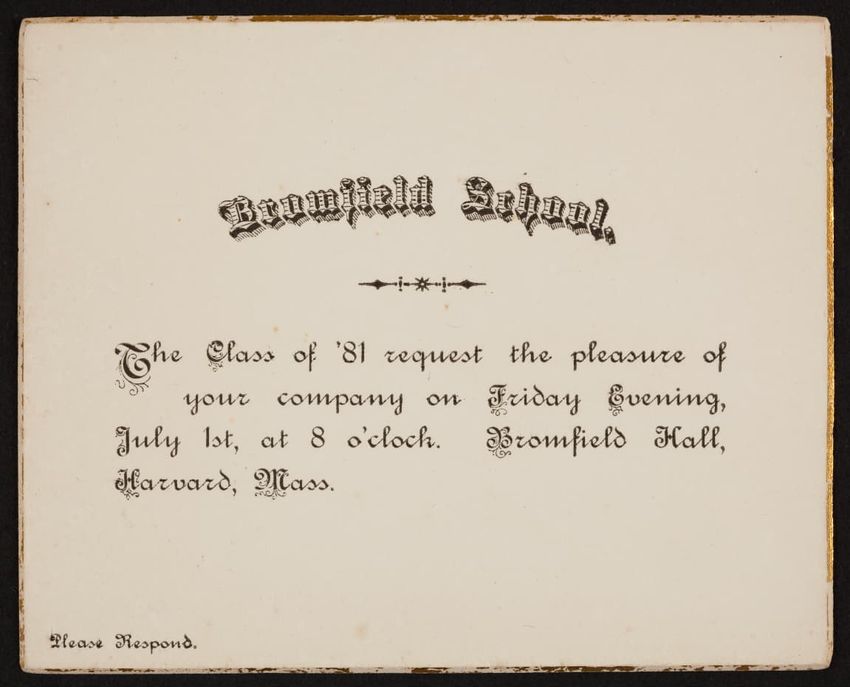 Bromfield School,
The Class of '81 request the pleasure of
your company on Friday Evening,
July 1st, at 8 o'clock. Bromfield Hall,
Harvard, Mass.
Please Respond.